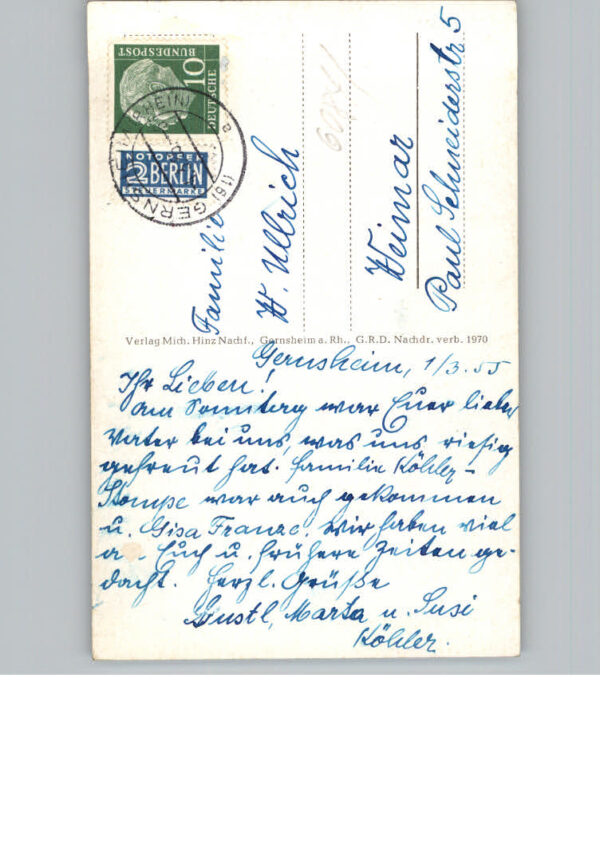 10
DEUTSCHE
BUNDESPOST
NOTOPFER
2 BERLIN
STEUERMARKE
(16) GERNS
RHEIN)
Familie
W. Ullrich
Weimar
Paul Schneiderstr. 5
Verlag Mich. Hinz Nachf., Gernsheim a. Rh., G.R.D. Nachdr. verb. 1970
Gernsheim, 1/3.55
Ihr Lieben!
Am Sonntag war Euer lieber
Vater bei uns, was uns riesig
gefreut hat. Familie Köhler-
war auch gekommen
u. Gisa Franze. Wir haben viel
a. Euch u. frühere Zeiten ge-
dacht. Herzl. Grüße
Gustl, Marta u. Susi
Köhler.